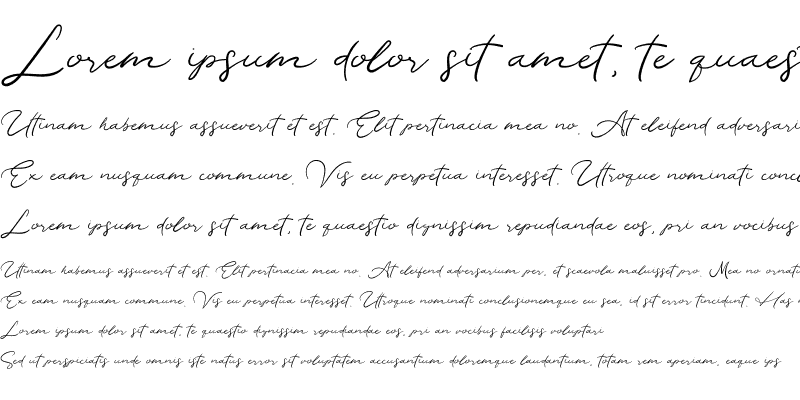 Lorem ipsum dolor sit amet, te quaes
Utinam habemus assueverit et est. Elit pertinacia mea no. At eleifend adversari
Ex eam nusquam commune. Vis eu perpetua interesset. Utroque nominati conc
Lorem ipsum dolor sit amet, te quaestio dignissim repudiandae eos, pri an vocibus
Utinam habemus assueverit et est. Elit pertinacia mea no. At eleifend adversarium per, et scaevola maluisset pro. Mea no ornati
Ex eam nusquam commune. Vis eu perpetua interesset. Utroque nominati conclusionemque eu sea, id sit error tincidunt. Has
Lorem ipsum dolor sit amet, te quaestio dignissim repudiandae eos, pri an vocibus facilisis voluptari
Sed ut perspiciatis unde omnis iste natus error sit voluptatem accusantium doloremque laudantium, totam rem aperiam, eaque ips